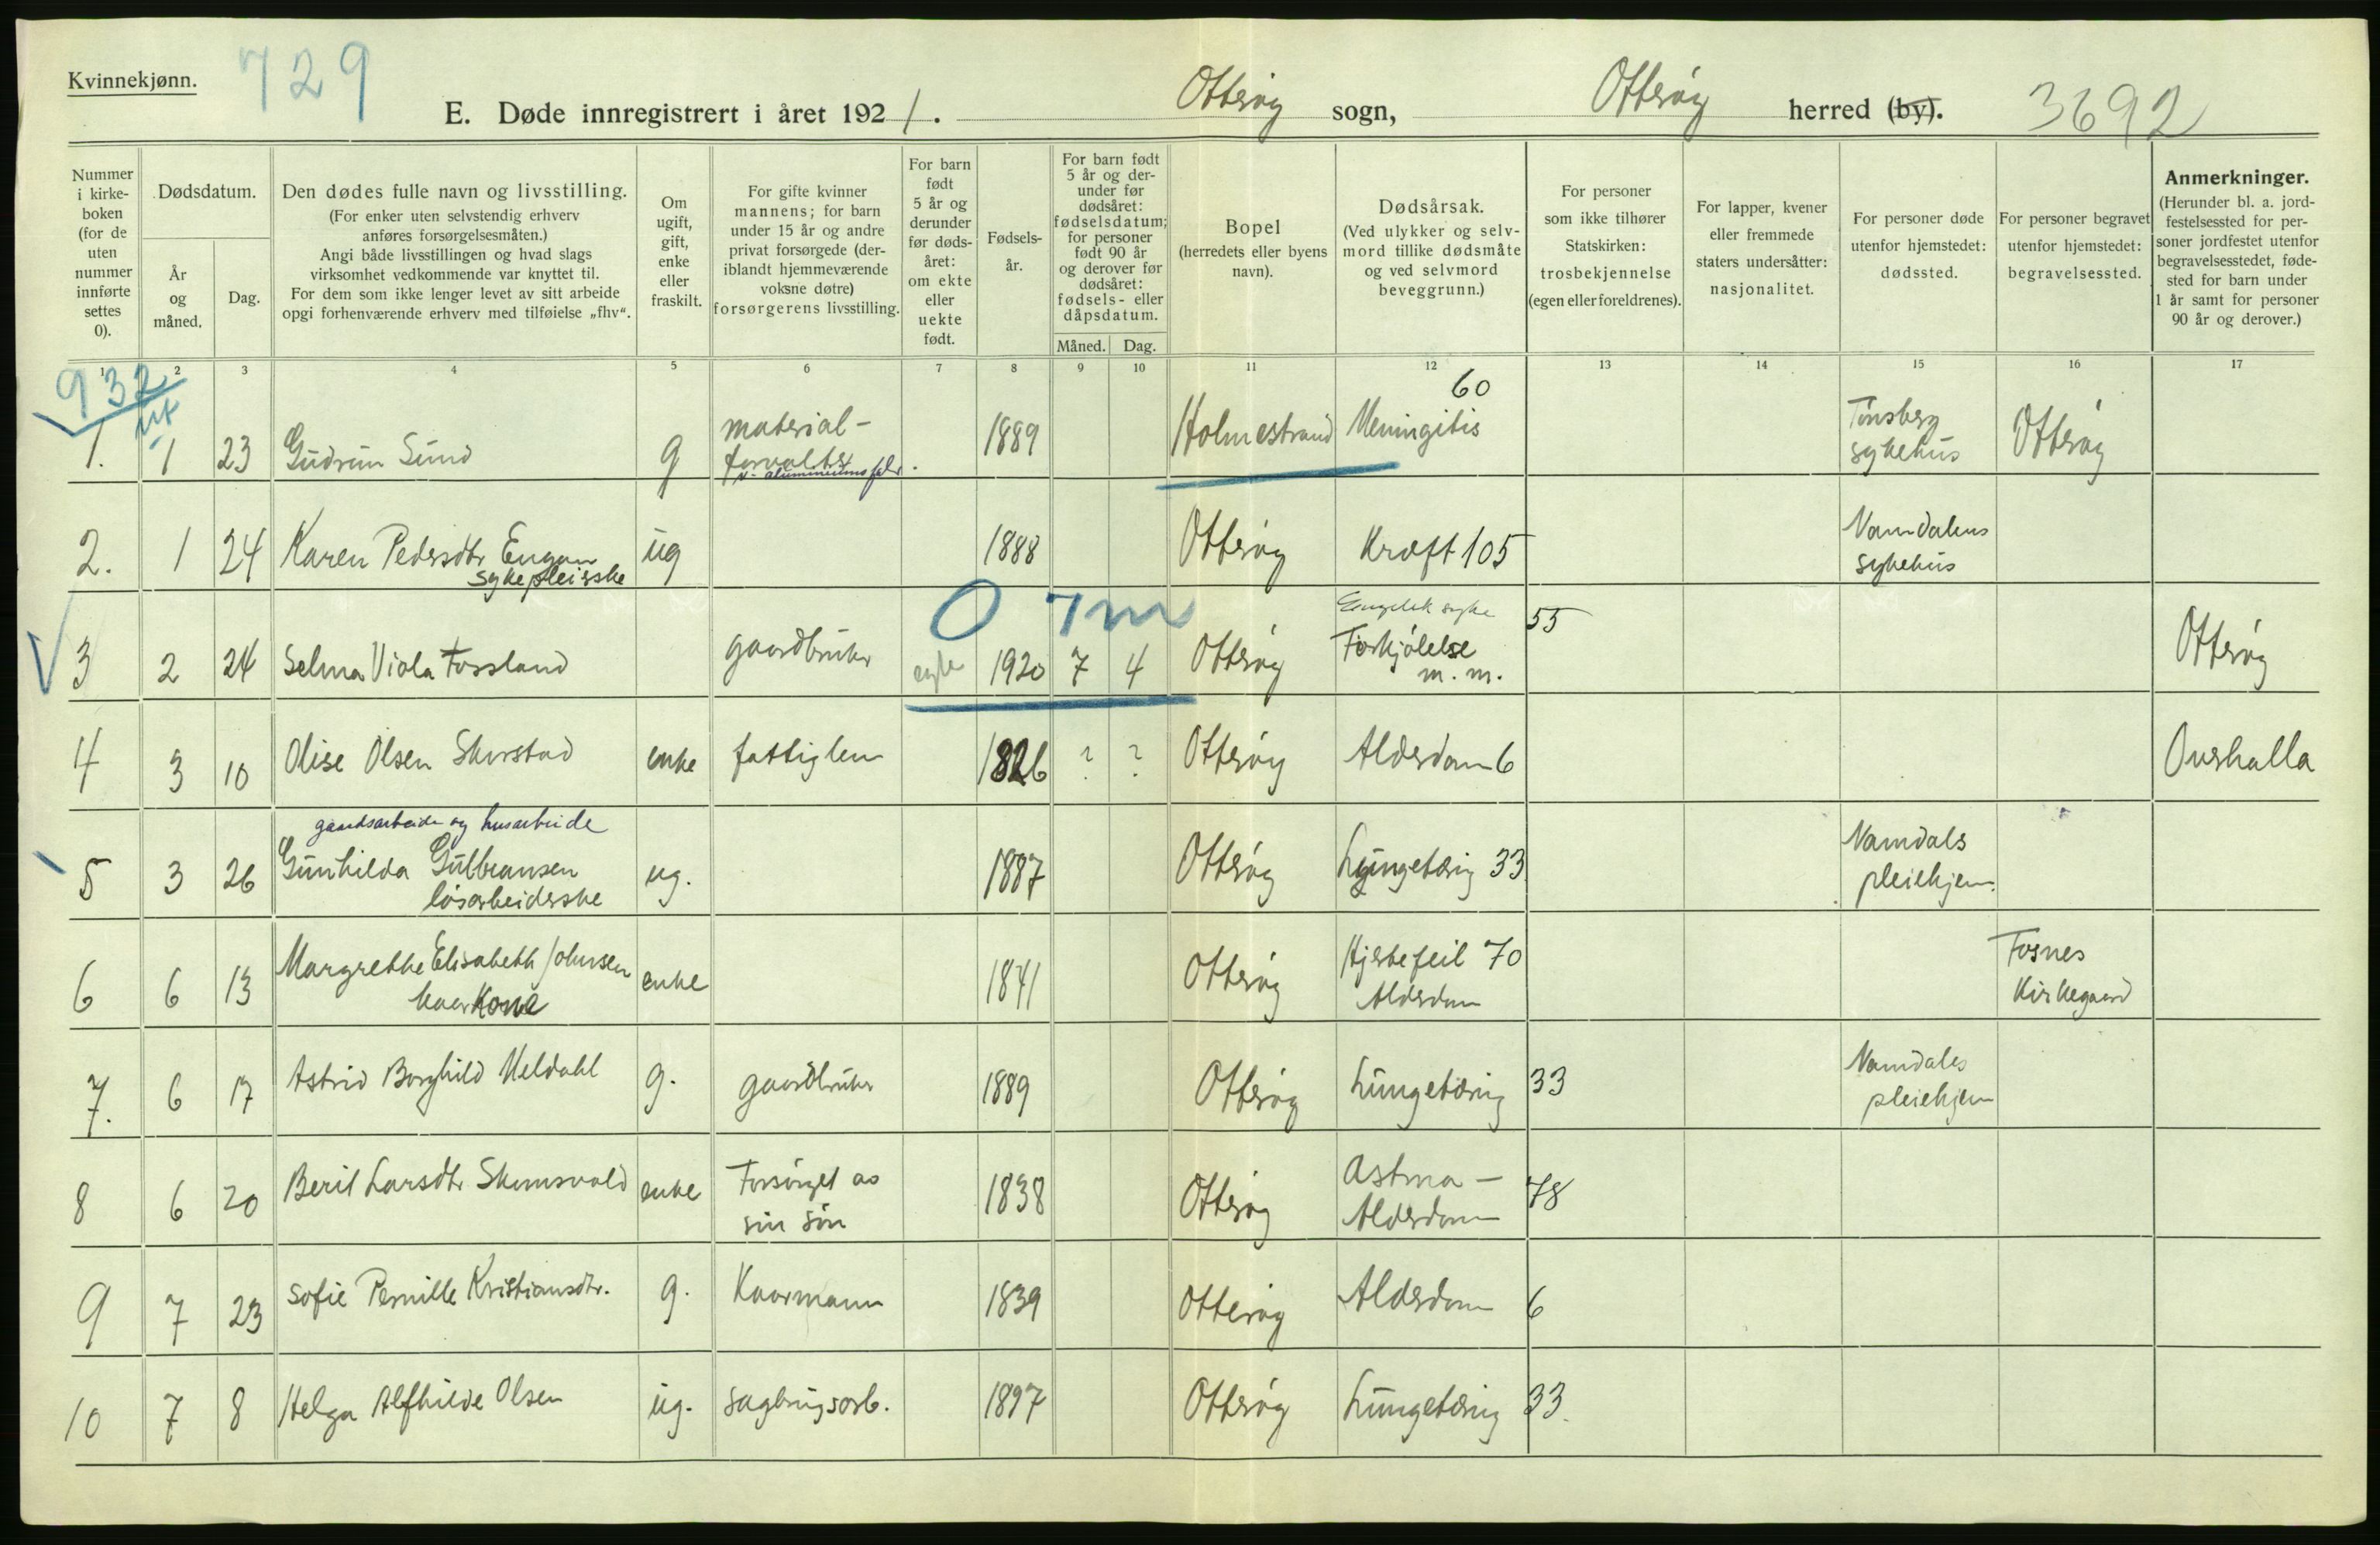 Kvinnekjønn.
729
E. Døde innregistrert i året 1921. Otterøy sogn, Otterøy herred (by).
3692
Nummer i kirkeboken (for de uten nummer innførte settes 0).
Dødsdatum.
År og måned.
Dag.
Den dødes fulle navn og livsstilling.
(For enker uten selvstendig erhverv
anføres forsørgelsesmåten.)
Angi både livsstillingen og hvad slags
virksomhet vedkommende var knyttet til.
For dem som ikke lenger levet av sitt arbeide
opgi forhenværende erhverv med tilføielse „fhv“.
Om
ugift,
gift,
enke
eller
fraskilt.
For gifte kvinner
mannens; for barn
under 15 år og andre
privat forsørgede (der-
iblandt hjemmeværende
voksne døtre)
forsørgerens livsstilling.
For barn
født
5 år og
derunder
før døds-
året:
om ekte
eller
uekte
født.
Fødsels-
år.
For barn født
5 år og der-
under før
dødsåret:
fødselsdatum;
for personer
født 90 år
og derover før
dødsåret:
fødsels- eller
dåpsdatum.
Måned. Dag.
Bopel
(herredets eller byens
navn).
Dødsårsak.
(Ved ulykker og selv-
mord tillike dødsmåte
og ved selvmord
beveggrunn.)
For personer
som ikke tilhører
Statskirken:
trosbekjennelse
(egen eller foreldrenes).
For lapper, kvener
eller fremmede
staters undersåtter:
nasjonalitet.
For personer døde
utenfor hjemstedet:
dødssted.
For personer begravet
utenfor hjemstedet:
begravelsessted.
Anmerkninger.
(Herunder bl. a. jord-
festelsessted for per-
soner jordfestet utenfor
begravelsesstedet, føde-
sted for barn under
1 år samt for personer
90 år og derover.)
1 2 3 4 5 6 7 8 9 10 11 12 13 14 15 16 17
932
ut
60
1. 1 23 Gudrun Sund g material-
forvalter
v. aluminiumsfabr. 1889 Holmestrand Meningitis Tönsberg
sykehus Otterøy
2. 1 24 Karen Pedersdtr Engan
sykepleierske ug 1888 Otterøy Kræft 105 Namdalens
sykehus
0 7 m
3 2 24 Selma Viola Fossland gaardbruker egte 1920 7 4 Otterøy Engelsk syke 55
Forkjølelse
m. m. Otterøy
4 3 10 Olise Olsen Skorstad enke fattiglem 1826 ? ? Otterøy Alderdom 6 Overhalla
gaardsarbeide og husarbeide
5 3 26 Gunhilda Gulbransen
løsarbeiderske ug. 1887 Otterøy Lungetæring 33 Namdals
pleiehjem.
6 6 13 Margrethe Elisabeth Johnsen
kaarkone enke 1841 Otterøy Hjertefeil 70
Alderdom Fosnes
Kirkegaard
7. 6 17 Astrid Borghild Meldahl g. gaardbruker 1889 Otterøy Lungetæring 33 Namdals
pleiehjem
8 6 20 Berit Larsdtr Skomsvold enke Forsörget av
sin sön 1838 Otterøy Astma - 78
Alderdom
9 7 23 Sofie Pernille Kristiansdtr. g. Kaarmann 1839 Otterøy Alderdom 6
10 7 8 Helga Alfhilde Olsen ug. sagbrugsarb. 1897 Otterøy Lungetæring 33.